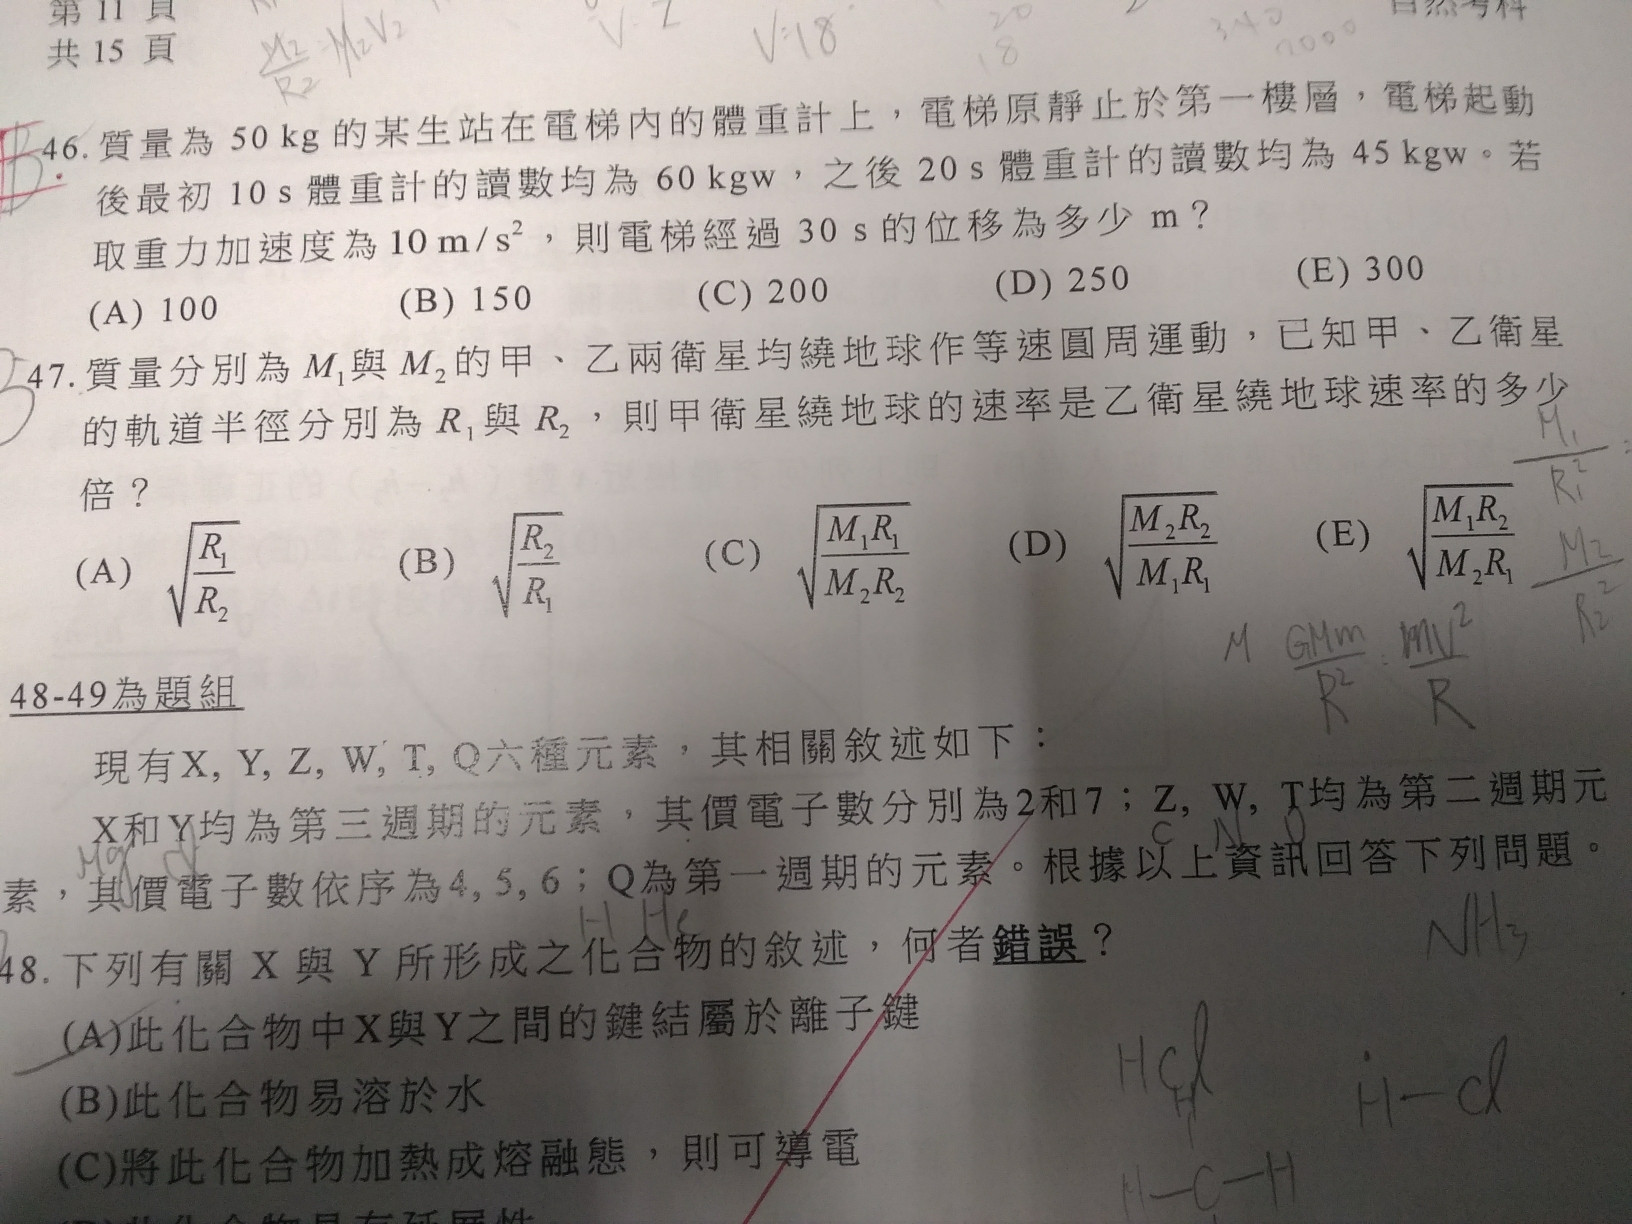 第 11 頁
共 15 頁
自然考科
M2/R2 = M2V2
V=18
20
18
340
46. 質量為 50 kg 的某生站在電梯內的體重計上，電梯原靜止於第一樓層，電梯起動
後最初 10 s 體重計的讀數均為 60 kgw，之後 20 s 體重計的讀數均為 45 kgw。若
取重力加速度為 10 m/s²，則電梯經過 30 s 的位移為多少 m？
(A) 100 (B) 150 (C) 200 (D) 250 (E) 300
47. 質量分別為 M₁與 M₂的甲、乙兩衛星均繞地球作等速圓周運動，已知甲、乙衛星
的軌道半徑分別為 R₁與 R₂，則甲衛星繞地球的速率是乙衛星繞地球速率的多少
倍？
(A) √(R₁/R₂) (B) √(R₂/R₁) (C) √(M₁R₁/M₂R₂) (D) √(M₂R₂/M₁R₁) (E) √(M₁R₂/M₂R₁)
M₁/R₁² =
M₂/R₂²
M GMm/R² = mV²/R
48-49為題組
現有X, Y, Z, W, T, Q六種元素，其相關敘述如下：
X和Y均為第三週期的元素，其價電子數分別為2和7；Z, W, T均為第二週期元
Mg Cl C N O
素，其價電子數依序為4, 5, 6；Q為第一週期的元素。根據以上資訊回答下列問題。
H He
NH₃
48. 下列有關 X 與 Y 所形成之化合物的敘述，何者錯誤？
(A)此化合物中X與Y之間的鍵結屬於離子鍵
(B)此化合物易溶於水
(C)將此化合物加熱成熔融態，則可導電
HCl
H-Cl
H
H-C-H